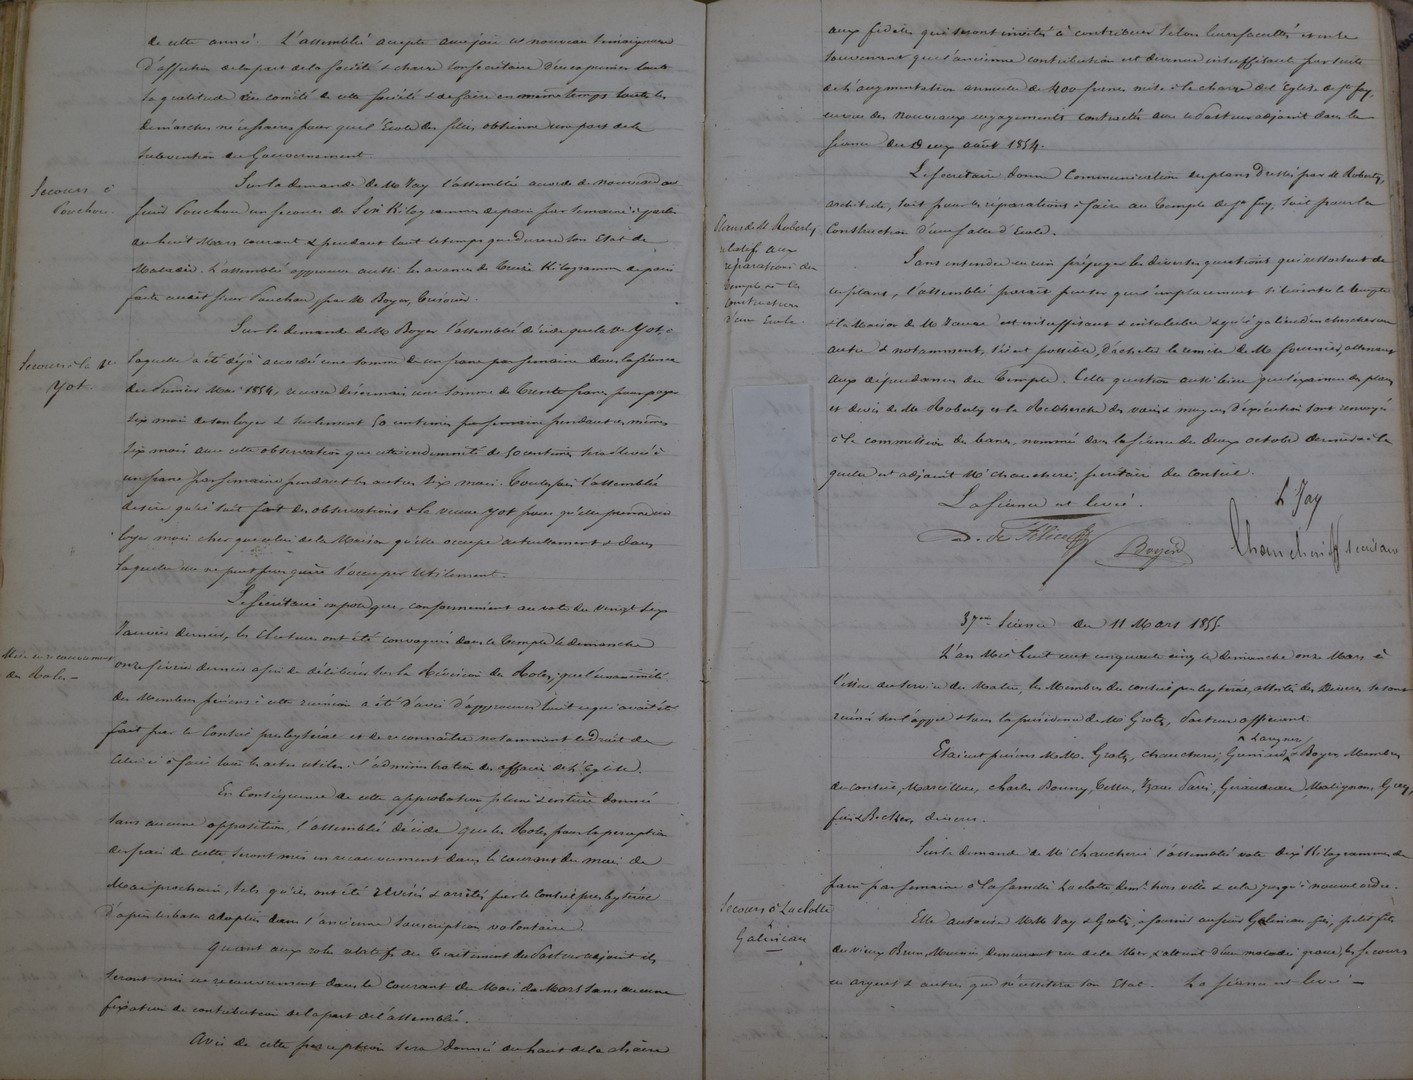 de cette année. L'assemblée accepte avec joie ce nouveau témoignage
d'affection de la part de la société & charge son secrétaire d'en exprimer toute
sa gratitude au comité de cette société & de faire en même temps toutes les
démarches nécessaires pour que l'Ecole des filles obtienne une part de la
subvention du Gouvernement.
Secours à
Pouchon.
Sur la demande de Mr Jay l'assemblée accorde de nouveau au
sieur Pouchon un secours de Six Kilogrammes de pain par semaine à partir
du huit Mars courant & pendant tout le temps que durera son Etat de
Maladie. L'assemblée approuve aussi les avances de Treize Kilogrammes de pain
faite au sieur Pouchon par Mr Boyer, Trésorier.
Secours à la Ve
Yot.
Sur la demande de Mr Boyer l'assemblée décide que la Ve Yot, à
laquelle a été déjà accordé une somme de un franc par semaine dans la séance
du premier Mai 1854, recevra désormais une somme de Trente francs pour payer
six mois de son loyer & seulement 50 centimes par semaine pendant ces mêmes
six mois avec cette observation que cette indemnité de 50 centimes sera élevée à
un franc par semaine pendant les autres six mois. Toutefois l'assemblée
désire qu'il soit fait des observations à la veuve Yot pour qu'elle prenne un
loyer moins cher que celui de la Maison qu'elle occupe actuellement & dans
laquelle elle ne peut pas guère s'occuper utilement.
Mise en recouvrement
des Roles —
Le secrétaire expose que, conformément au vote du vingt six
Janvier dernier, les Electeurs ont été convoqués dans le Temple le dimanche
onze février dernier afin de délibérer sur la Révision des Roles; que l'unanimité
des Membres présens à cette réunion a été d'avis d'approuver tout ce qui avait été
fait par le Conseil presbytéral et de reconnaître notamment le droit de
celui-ci à faire tous les actes utiles à l'administration des affaires de l'Eglise.
En Conséquence de cette approbation pleine & entière donnée
sans aucune opposition, l'assemblée décide que les Roles pour la perception
des frais de culte seront mis en recouvrement dans le courant du mois de
Mai prochain, tels qu'ils ont été révisés & arrêtés par le Conseil presbytéral
d'après les bases adoptées dans l'ancienne souscription volontaire.
Quant aux roles relatifs au Traitement du Pasteur adjoint ils
seront mis en recouvrement dans le courant du Mois de Mars sans aucune
fixation de contribution de la part de l'assemblée.
Avis de cette perception sera donné du haut de la chaire
aux fidèles qui seront invités à contribuer selon leurs facultés et en se
souvenant que l'ancienne contribution est devenue insuffisante par suite
de l'augmentation annuelle de 400 francs mise à la charge de l'Eglise de Ste foy,
en vue des nouveaux engagements contractés avec le Pasteur adjoint dans la
séance du Deux août 1854.
Plans de Mr Roberty
relatif aux
réparations du
temple et à la
construction
d'une Ecole.
Le secrétaire donne Communication des plans dressés par Mr Roberty,
architecte, soit pour les réparations à faire au Temple de Ste foy, soit pour la
construction d'une salle d'Ecole.
Sans entendre en rien préjuger les diverses questions qui ressortent de
ces plans, l'assemblée paraît penser que l'emplacement situé entre le temple
& la Maison de Mr est insuffisant & insalubre & qu'il y a lieu d'en chercher un
autre & notamment, s'il est possible, d'acheter la remise de Mr fournier, attenant
aux dépendances du Temple. Cette question aussi bien que l'examen des plans
et devis de Mr Roberty et la Recherche des voies & moyens d'exécution sont renvoyés
à la commission des bancs, nommée dans la séance du deux octobre dernier à la
quelle est adjoint Mr chaucherie, secrétaire du Conseil.
La séance est levée.
L. Jay
D. de Félice
Boyer
Chaucherie secrétaire
37me Séance du 11 Mars 1855.
L'an Mil huit cent cinquante cinq le dimanche onze Mars à
l'issue du service du Matin, les Membres du conseil presbytéral, assistés des Diacres se sont
réunis sur l'appel & sous la présidence de Mr Grotz, Pasteur officiant.
Etaient présens MM. Grotz, chaucherie, Guiraud, & Boyer Membres
du conseil, Marcillac, charles Bonny, Paris, Giraudeau Matignon,
& Becker, diacres.
Secours à Laclotte
& Galineau
Sur la demande de Mr chaucherie l'assemblée vote dix Kilogrammes de
pain par semaine à la famille Laclotte demt hors ville & cela jusqu'à nouvel ordre.
Elle autorise MM. Jay & Grotz, à fournir au sieur Galineau fils, petit fils
du vieux demeurant rue de la Mer, & atteint d'une maladie grave, les secours
en argent & autres que nécessitera son Etat. La séance est levée —